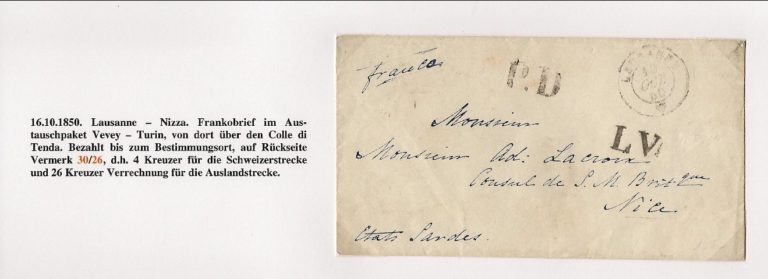 16.10.1850. Lausanne – Nizza. Frankobrief im Aus-
tauschpaket Vevey – Turin, von dort über den Colle di
Tenda. Bezahlt bis zum Bestimmungsort, auf Rückseite
Vermerk 30/26, d.h. 4 Kreuzer für die Schweizerstrecke
und 26 Kreuzer Verrechnung für die Auslandstrecke.
franco
P.D
LAUSANNE
L.V.
Monsieur
Monsieur Ad: Lacroix
Consul de S. M. Britque
Nice.
Etats Sardes.